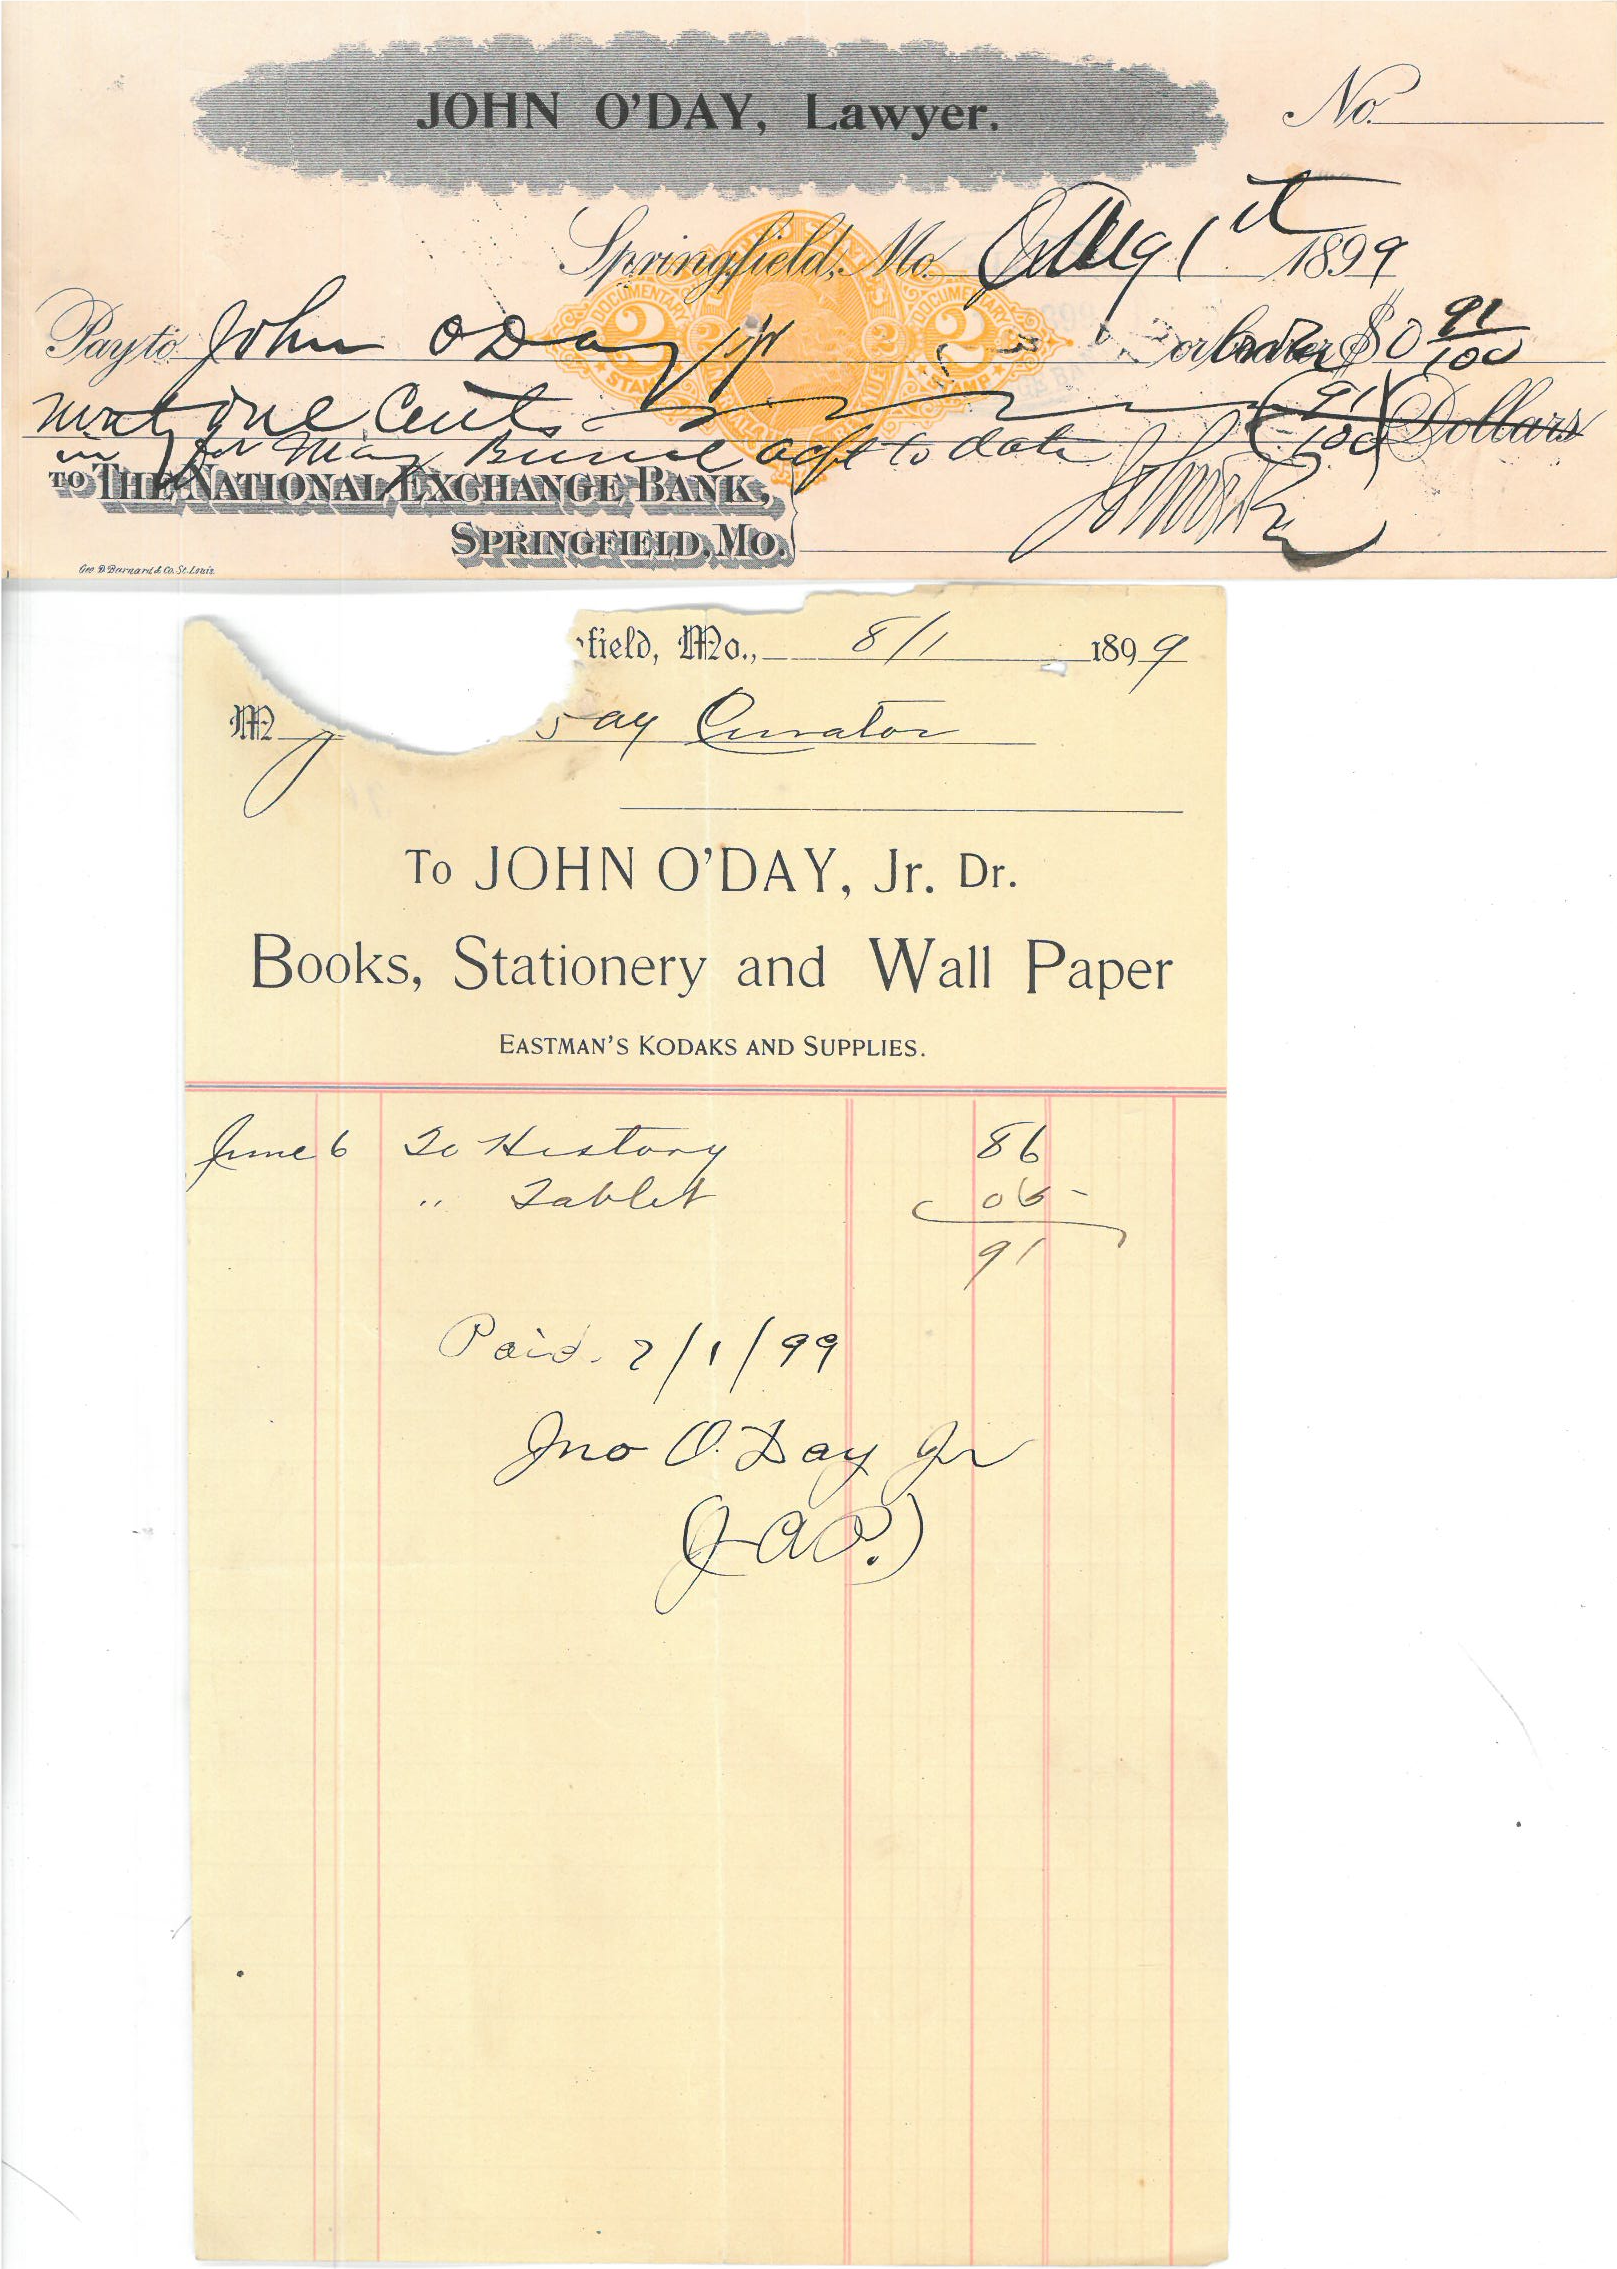 JOHN O'DAY, Lawyer.
No.
Springfield, Mo. Aug 1st 1899
Pay to John O Day Jr or bearer $0 91/100
Ninety one Cents (91/100) Dollars
in full for May acft to date
TO THE NATIONAL EXCHANGE BANK,
SPRINGFIELD, MO.
Geo. D. Barnard & Co. St. Louis.
UNITED STATES
DOCUMENTARY 2 2 2 2 DOCUMENTARY
STAMP STAMP
field, Mo., 8/1 1899
M J ay Curator
To JOHN O'DAY, Jr. Dr.
Books, Stationery and Wall Paper
EASTMAN'S KODAKS AND SUPPLIES.
June 6 To History 86
" Tablet 05
91
Paid. 7/1/99
Jno O. Day Jr
(J A P.)